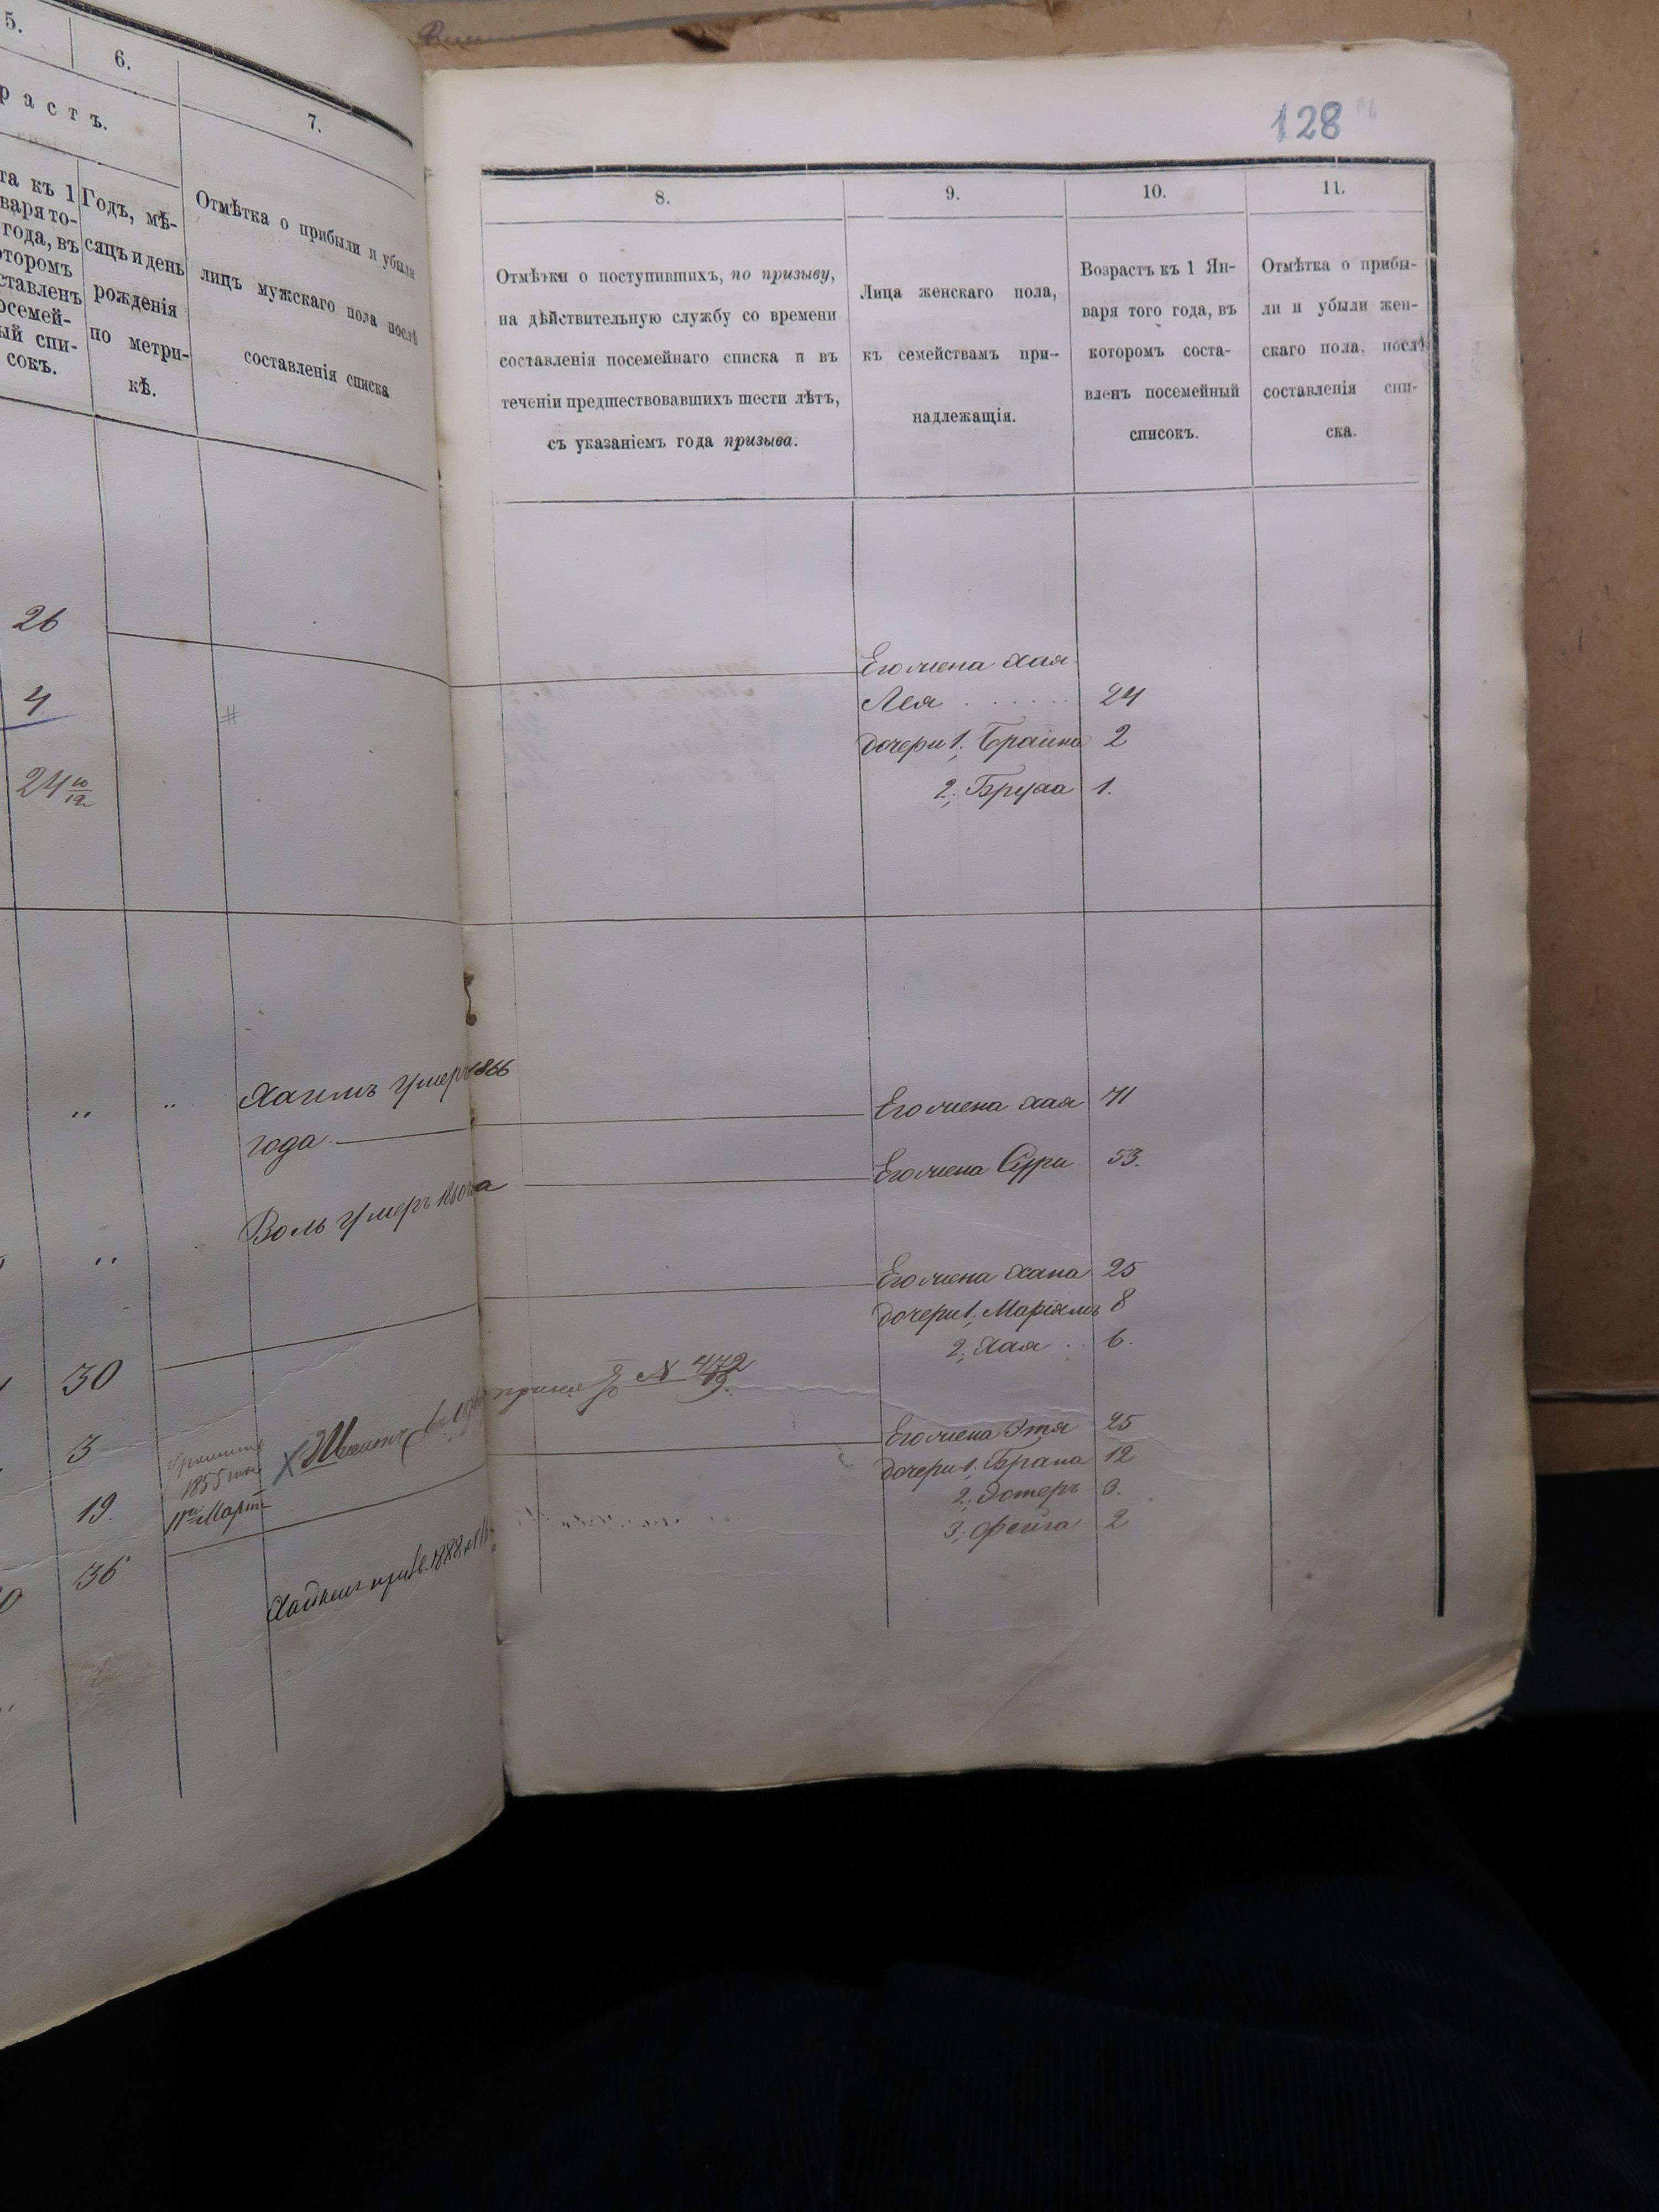 5.
6.
7.
растъ.
та къ 1
варя то-
года, въ
отромъ
ставленъ
осемей-
ый спи-
сокъ.
Годъ, мѣ-
сяцъ и день
рожденія
по метри-
кѣ.
Отмѣтка о прибыли и убыли
лицъ мужскаго пола послѣ
составленія списка
26
4
24 10/12
Хаимъ умеръ 1866
года
Воль умеръ
30
3
1855 года
11го Марта
19.
36
128
8.
9.
10.
11.
Отмѣтки о поступившихъ, по призыву,
на дѣйствительную службу со времени
составленія посемейнаго списка и въ
теченіи предшествовавшихъ шести лѣтъ,
съ указаніемъ года призыва.
Лица женскаго пола,
къ семействамъ при-
надлежащія.
Возрастъ къ 1 Ян-
варя того года, въ
котором соста-
вленъ посемейный
списокъ.
Отмѣтка о прибы-
ли и убыли жен-
скаго пола, послѣ
составленія спи-
ска.
Его жена Хая
Лея 24
дочери 1, Брайна 2
2, Бруха 1.
Его жена Хая 71
Его жена Сури 53.
Его жена Хана 25
дочери 1, Маріямъ 8
2, Хая 6.
№ 472
Его жена Этя 25
дочери 1. Брана 12
2, Эстеръ 3.
3, Фейга 2